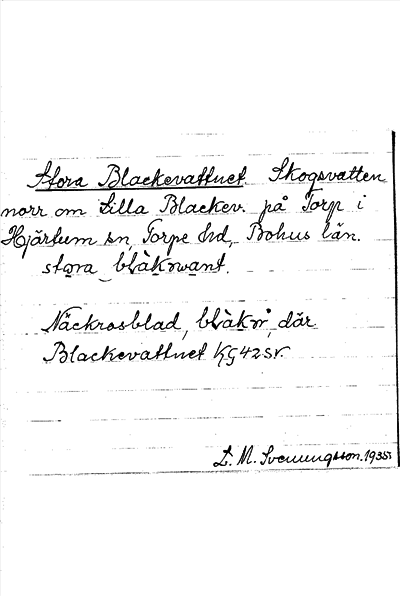 Stora Blackevattnet. Skogsvatten
norr om Lilla Blackev. på Torp i
Hjärtum sn, Torpe hd, Bohus län.
stora blàkɜwant.
Näckrosblad, blàkɜr, där
Blackevattnet KG 42 sv.
L. M. Svenungsson. 1935.